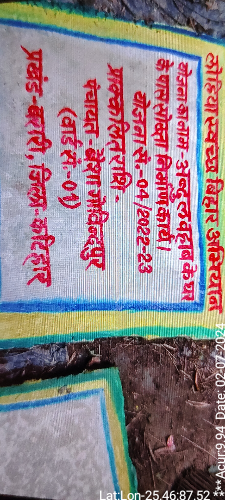 लोहिया स्वच्छ बिहार अभियान
योजना का नाम- अब्दुल वहाब के घर
के पास सोख्ता निर्माण कार्य।
योजना सं०-04/2022-23
प्राक्कलन राशि-
पंचायत-
(वार्ड सं०-01)
प्रखंड-बरारी, जिला-कटिहार
Lat:Lon-25.46:87.52
***Acur:9.94 Date: 02-07-2024